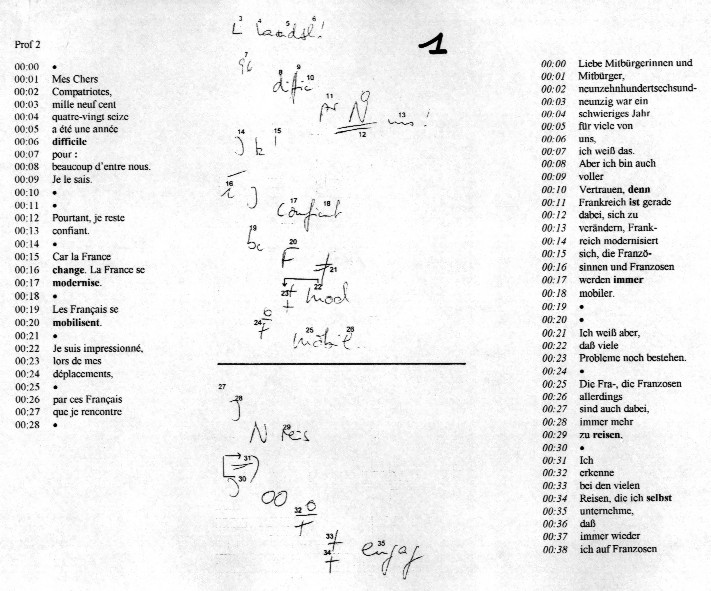 Prof 2
00:00 •
00:01 Mes Chers
00:02 Compatriotes,
00:03 mille neuf cent
00:04 quatre-vingt seize
00:05 a été une année
00:06 difficile
00:07 pour :
00:08 beaucoup d'entre nous.
00:09 Je le sais.
00:10 •
00:11 •
00:12 Pourtant, je reste
00:13 confiant.
00:14 •
00:15 Car la France
00:16 change. La France se
00:17 modernise.
00:18 •
00:19 Les Français se
00:20 mobilisent.
00:21 •
00:22 Je suis impressionné,
00:23 lors de mes
00:24 déplacements,
00:25 •
00:26 par ces Français
00:27 que je rencontre
00:28 •
1
3 4 5 6
L
7
96
8 9 10
diffic
11
N
13
12
14 15
J
16
J
17 18
confiant
19
20
F
21
23 22
mod
24
25 26
mobil
27
28
J
29
N
31
30
32
33
34
35
engag
00:00 Liebe Mitbürgerinnen und
00:01 Mitbürger,
00:02 neunzehnhundertsechsund-
00:03 neunzig war ein
00:04 schwieriges Jahr
00:05 für viele von
00:06 uns,
00:07 ich weiß das.
00:08 Aber ich bin auch
00:09 voller
00:10 Vertrauen, denn
00:11 Frankreich ist gerade
00:12 dabei, sich zu
00:13 verändern, Frank-
00:14 reich modernisiert
00:15 sich, die Franzö-
00:16 sinnen und Franzosen
00:17 werden immer
00:18 mobiler.
00:19 •
00:20 •
00:21 Ich weiß aber,
00:22 daß viele
00:23 Probleme noch bestehen.
00:24 •
00:25 Die Fra-, die Franzosen
00:26 allerdings
00:27 sind auch dabei,
00:28 immer mehr
00:29 zu reisen.
00:30 •
00:31 Ich
00:32 erkenne
00:33 bei den vielen
00:34 Reisen, die ich selbst
00:35 unternehme,
00:36 daß
00:37 immer wieder
00:38 ich auf Franzosen